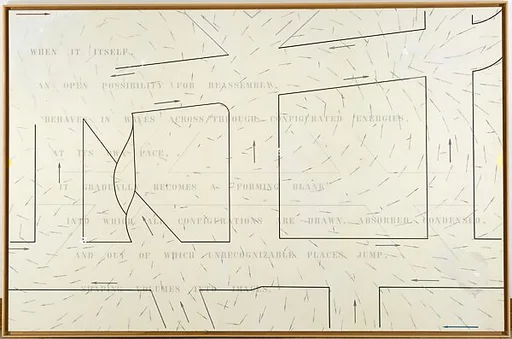 WHEN IT ITSELF,
AN OPEN POSSIBILITY FOR REASSEMBLY,
BEHAVE IN WAVES ACROSS/THROUGH CONFIGURATED ENERGIES,
AT ITS PACE,
IT GRADUALLY BECOMES A "FORMING BLANK"
INTO WHICH ALL CONFIGURATIONS ARE DRAWN, ABSORBED, CONDENSED,
AND OUT OF WHICH UNRECOGNIZABLE PLACES JUMP,
VOLUMES INTO IMAGES.